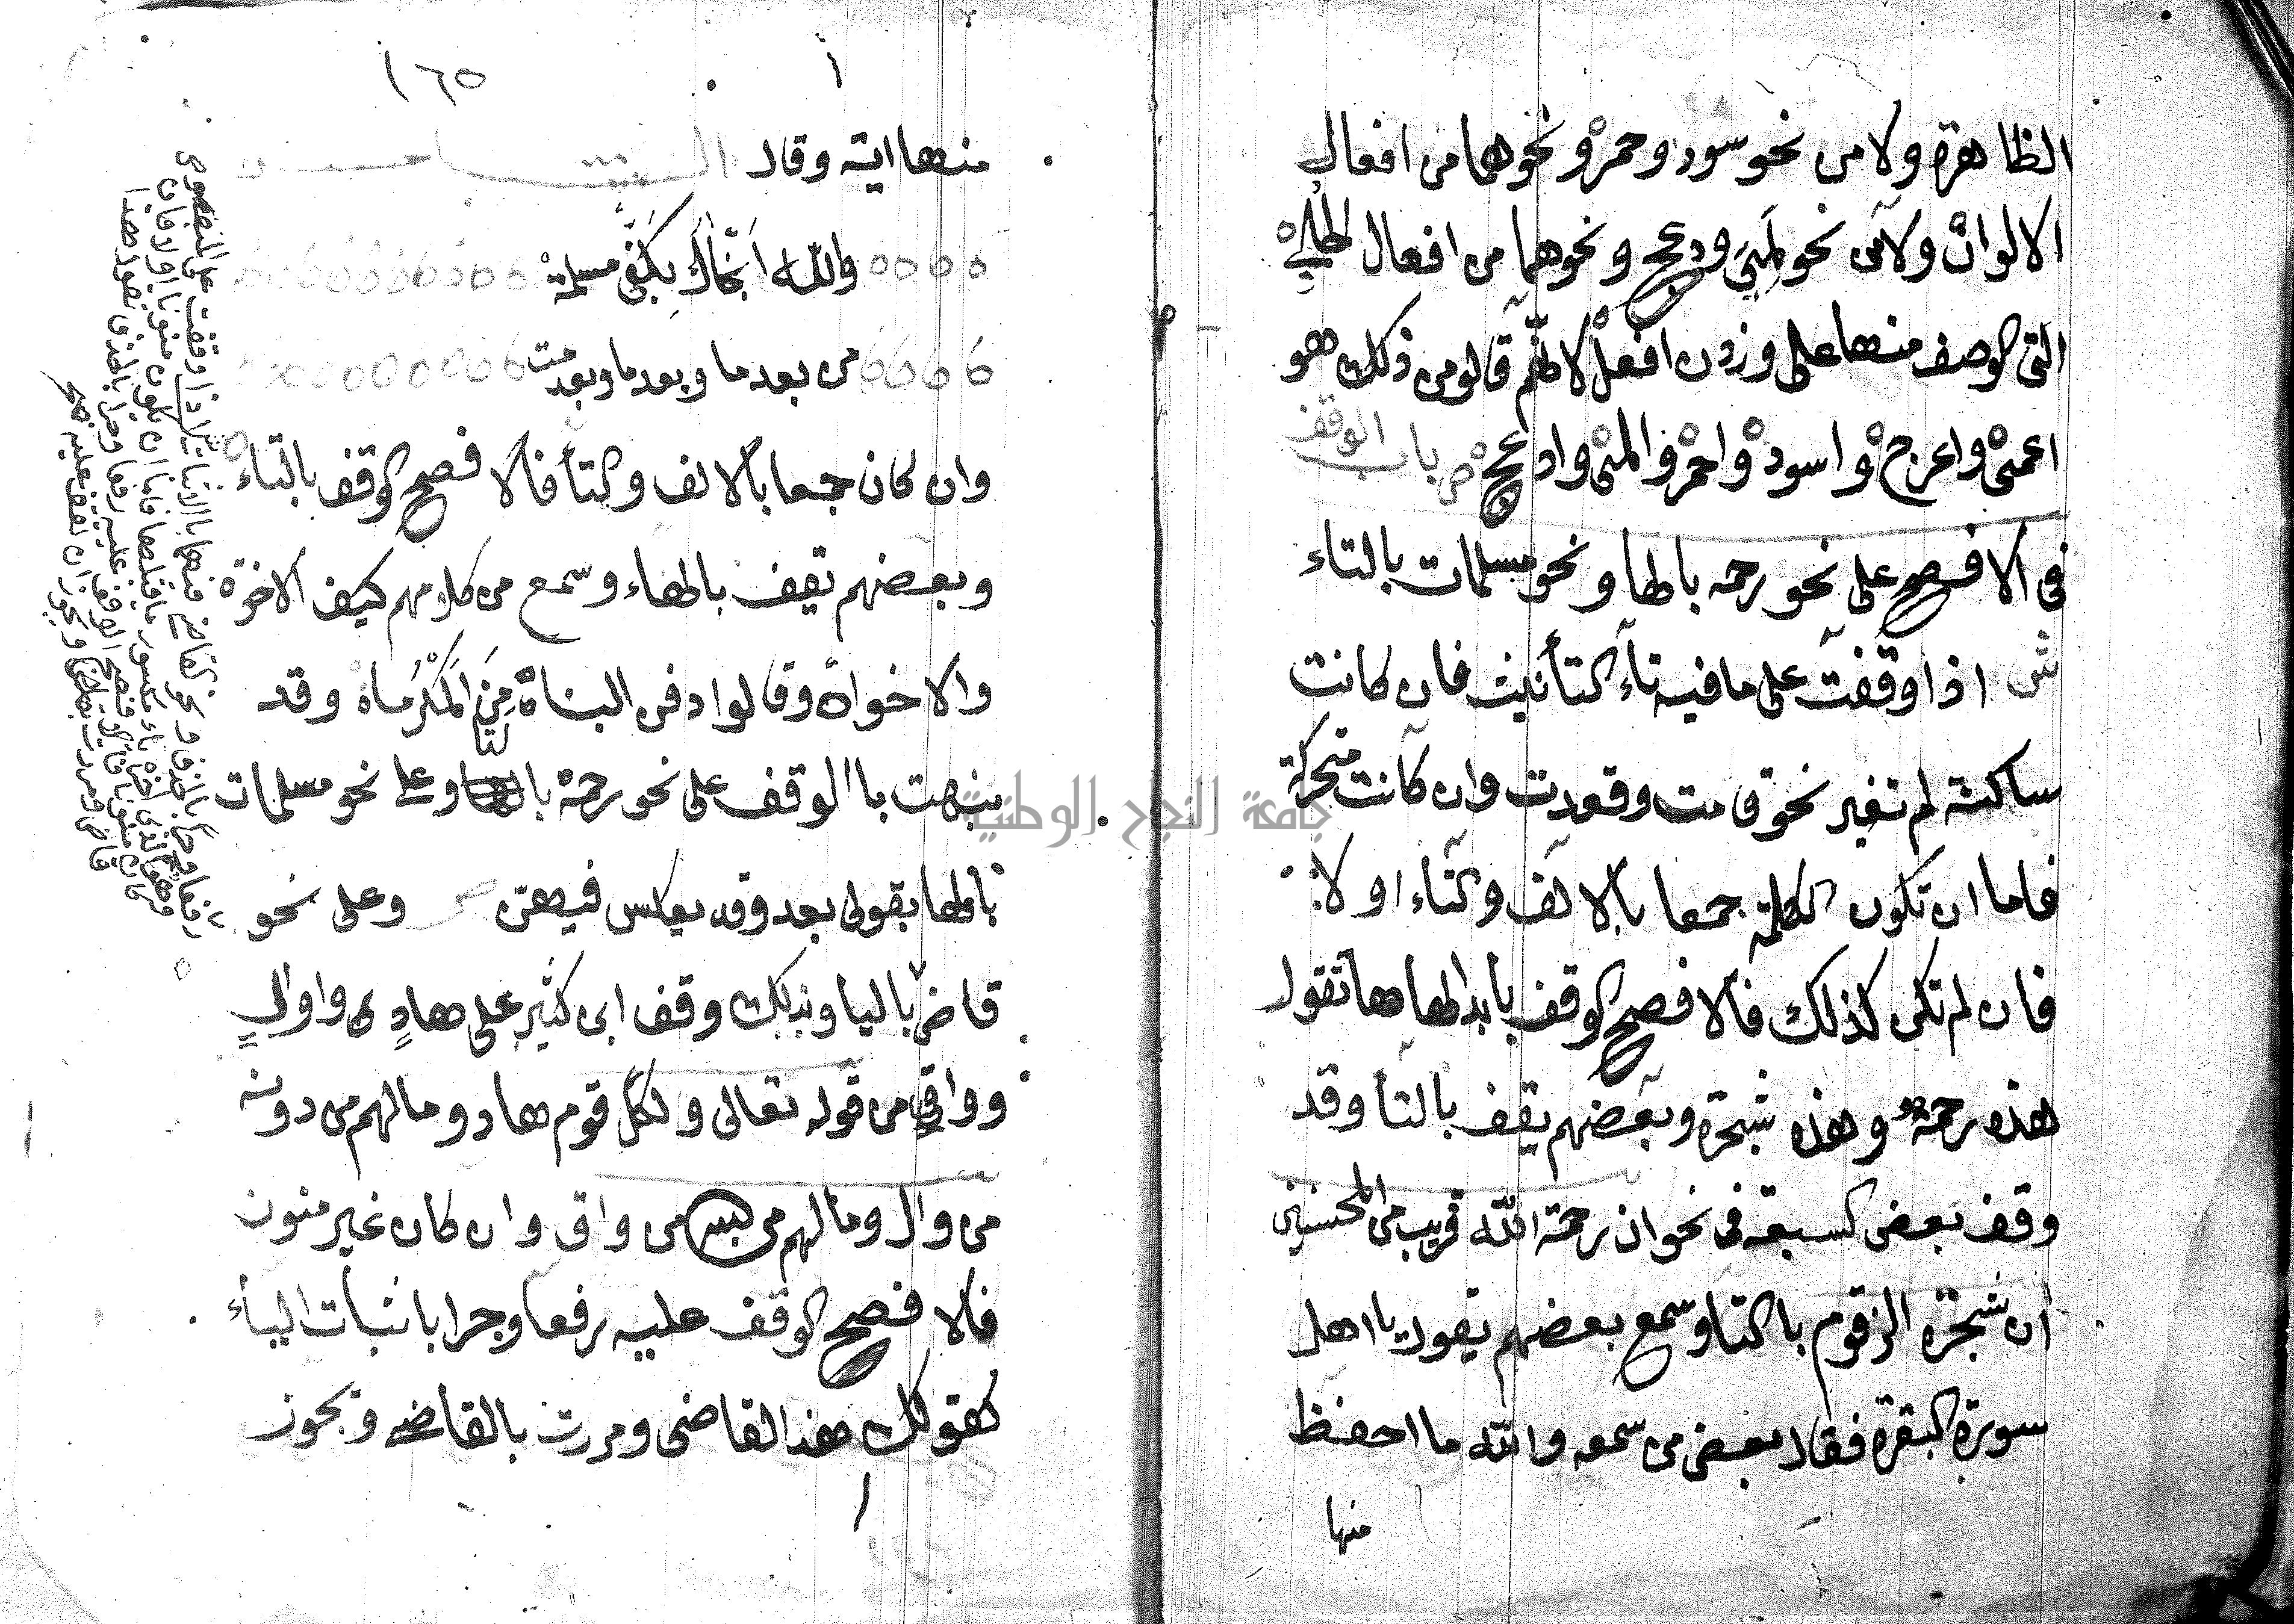 الظاهرة ولا من نحو سود وحمر ونحوهما من افعال
الالوان ولا من نحو لمى ودعج ونحوهما من افعال الحلي
التي الوصف منها على وزن افعل لانهم قالو من ذلك هو
اعمى واعرج واسود واحمر والمى وادعج ص باب الوقف
في الافصح على نحو رحمه بالها ونحو مسلمات بالتاء
ش اذا وقفت على ما فيه تاء التأنيث فان كانت
ساكنة لم تغير نحو قامت وقعدت وان كانت متحركة
فاما ان تكون الكلمة جمعا بالالف والتاء اولا
فان لم تكن كذلك فالافصح الوقف بابدالها هاء تقول
هذه رحمه وهذه شجره وبعضهم يقف بالتاء وقد
وقف بعض السبعة في نحو ان رحمة الله قريب من المحسنين
ان شجرة الزقوم بالتا وسمع بعضهم يقول يا اهل
سورة البقرة فقال بعض من سمعه والله ما احفظ
منها
١٦٥
منها اية وقال
والله انجاك بكفي مسلمة
من بعد ما وبعد ما وبعد مت
وان كان جمعا بالالف والتاء فالافصح الوقف بالتاء
وبعضهم يقف بالهاء وسمع من كلامهم كيف الاخوة
والاخواه وقالوا دفن البناه من المكرماه وقد
نبهت با الوقف على نحو رحمة بالتا وعلى نحو مسلمات
بالها بقولي بعد وقد يعكس فيهن ص وعلى نحو
قاض باليا وبذلك وقف ابن كثير على هادي ووالي
وواقي من قوله تعالى ولكل قوم هاد وما لهم من دونه
من وال وما لهم من الله من واق وان كان غير منون
فالافصح الوقف عليه رفعا وجرا باثبات الياء
كقولك هذا القاضي ومررت بالقاضي ويجوز
جامعة النجاح الوطنية